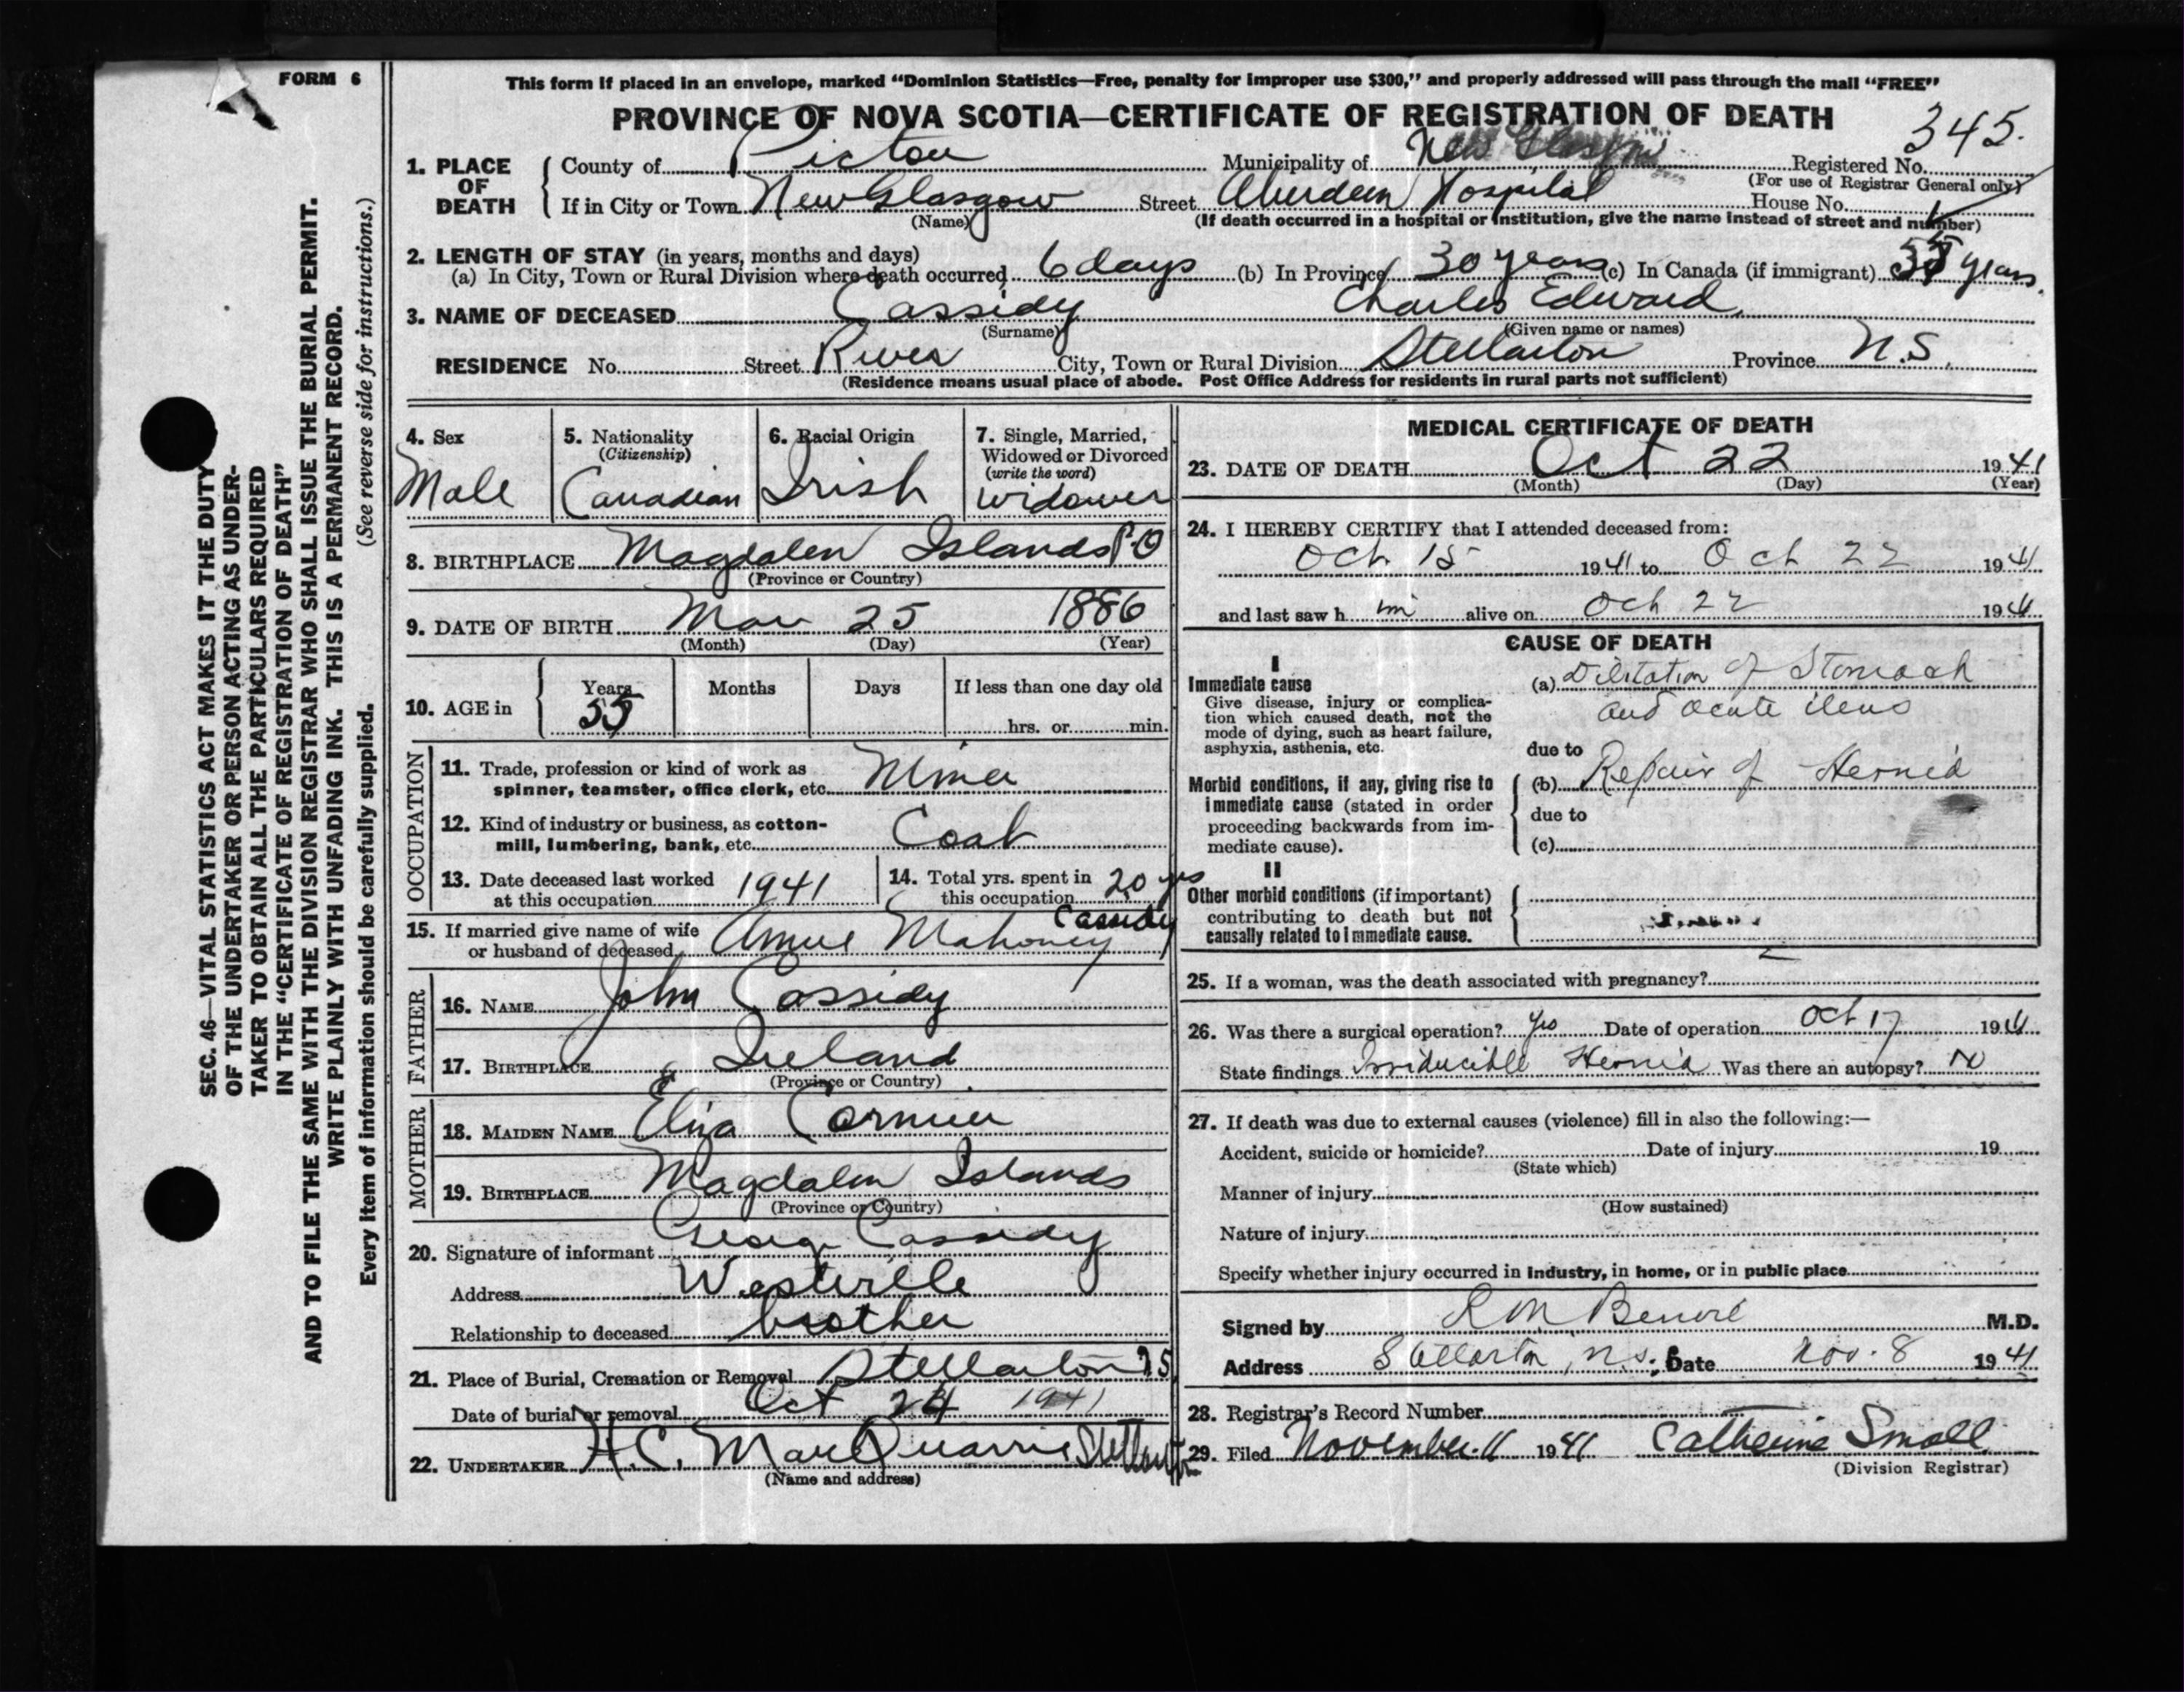 FORM 6
This form if placed in an envelope, marked “Dominion Statistics—Free, penalty for improper use $300,” and properly addressed will pass through the mail “FREE”
PROVINCE OF NOVA SCOTIA—CERTIFICATE OF REGISTRATION OF DEATH
345.
1. PLACE OF DEATH
County of Pictou Municipality of New Glasgow Registered No.
(For use of Registrar General only)
If in City or Town New Glasgow Street Aberdeen Hospital House No.
(Name) (If death occurred in a hospital or institution, give the name instead of street and number)
2. LENGTH OF STAY (in years, months and days)
(a) In City, Town or Rural Division where death occurred 6 days (b) In Province 30 years (c) In Canada (if immigrant) 55 years.
3. NAME OF DECEASED Cassidy Charles Edward
(Surname) (Given name or names)
RESIDENCE No. Street River City, Town or Rural Division Stellarton Province N.S.
(Residence means usual place of abode. Post Office Address for residents in rural parts not sufficient)
4. Sex Male
5. Nationality (Citizenship) Canadian
6. Racial Origin Irish
7. Single, Married, Widowed or Divorced (write the word) widower
8. BIRTHPLACE Magdalen Islands P.Q
(Province or Country)
9. DATE OF BIRTH Mar 25 1886
(Month) (Day) (Year)
10. AGE in Years 55 Months Days If less than one day old
hrs. or min.
OCCUPATION
11. Trade, profession or kind of work as spinner, teamster, office clerk, etc. Miner
12. Kind of industry or business, as cotton-mill, lumbering, bank, etc. Coal
13. Date deceased last worked at this occupation 1941
14. Total yrs. spent in this occupation 20 yrs
15. If married give name of wife or husband of deceased Annie Mahoney Cassidy
FATHER
16. NAME John Cassidy
17. BIRTHPLACE Ireland
(Province or Country)
MOTHER
18. MAIDEN NAME Eliza Cormier
19. BIRTHPLACE Magdalen Islands
(Province or Country)
20. Signature of informant George Cassidy
Address Westville
Relationship to deceased brother
21. Place of Burial, Cremation or Removal Stellarton N.S
Date of burial or removal Oct 24 1941
22. UNDERTAKER H.C. MacQuarrie Stellarton
(Name and address)
MEDICAL CERTIFICATE OF DEATH
23. DATE OF DEATH Oct 22 1941
(Month) (Day) (Year)
24. I HEREBY CERTIFY that I attended deceased from:
Oct 15 1941 to Oct 22 1941
and last saw h im alive on Oct 22 1941
CAUSE OF DEATH
I
Immediate cause
Give disease, injury or complication which caused death, not the mode of dying, such as heart failure, asphyxia, asthenia, etc.
(a) Dilitation of Stomach
and acute ileus
due to
Morbid conditions, if any, giving rise to immediate cause (stated in order proceeding backwards from immediate cause).
(b) Repair of Hernia
due to
(c)
II
Other morbid conditions (if important) contributing to death but not causally related to immediate cause.
25. If a woman, was the death associated with pregnancy?
26. Was there a surgical operation? Yes Date of operation Oct 17 1941
State findings Irriducible Hernia Was there an autopsy? No
27. If death was due to external causes (violence) fill in also the following:—
Accident, suicide or homicide? Date of injury 19
(State which)
Manner of injury
(How sustained)
Nature of injury
Specify whether injury occurred in industry, in home, or in public place
Signed by R M Benvie M.D.
Address Stellarton, N.S. Date Nov. 8 1941
28. Registrar's Record Number
29. Filed November 11 1941 Catherine Small
(Division Registrar)
SEC. 46—VITAL STATISTICS ACT MAKES IT THE DUTY
OF THE UNDERTAKER OR PERSON ACTING AS UNDER-
TAKER TO OBTAIN ALL THE PARTICULARS REQUIRED
IN THE “CERTIFICATE OF REGISTRATION OF DEATH”
AND TO FILE THE SAME WITH THE DIVISION REGISTRAR WHO SHALL ISSUE THE BURIAL PERMIT.
WRITE PLAINLY WITH UNFADING INK. THIS IS A PERMANENT RECORD.
Every item of information should be carefully supplied. (See reverse side for instructions.)